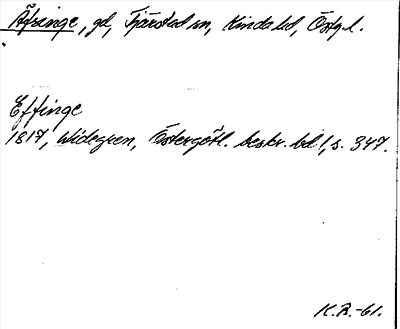 Äfsinge, gd, Tjärstad sn, Kinda hd, Östg. l.
Effinge
1817, Widegren, Östergötl. beskr. bd 1, s. 347.
K.R.-61.